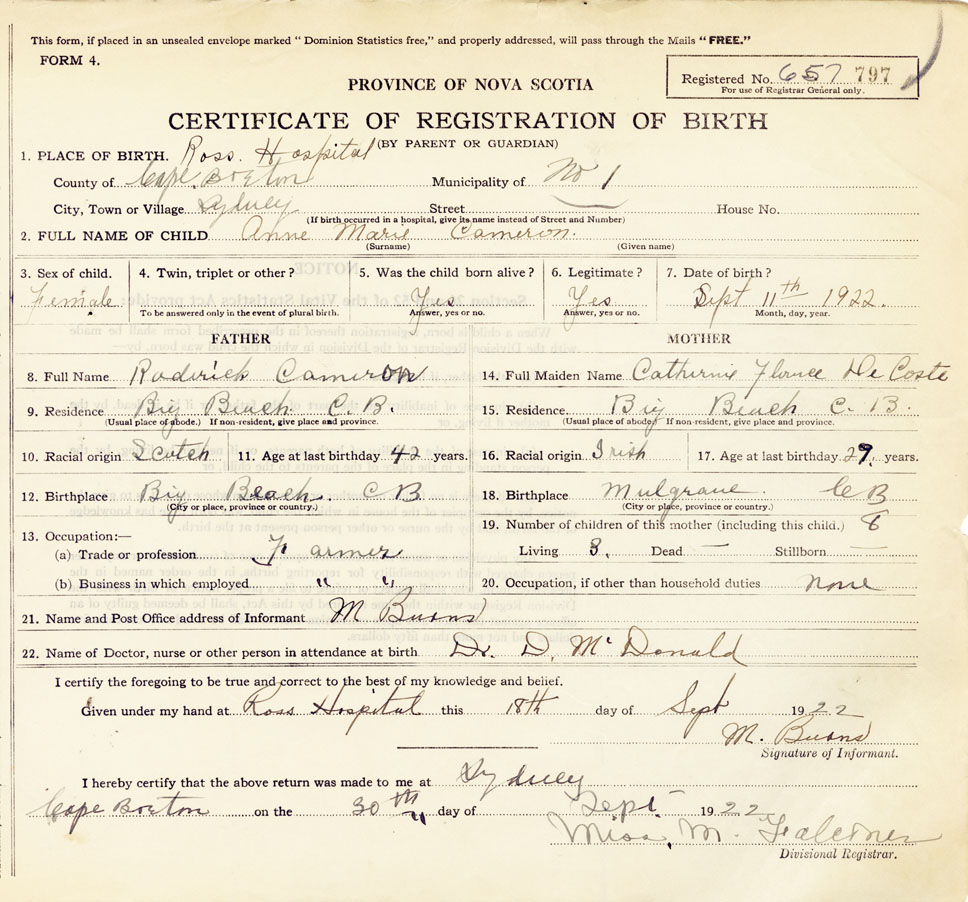 This form, if placed in an unsealed envelope marked "Dominion Statistics free," and properly addressed, will pass through the Mails "FREE."
FORM 4.
Registered No. 657 797
For use of Registrar General only.
PROVINCE OF NOVA SCOTIA
CERTIFICATE OF REGISTRATION OF BIRTH
(BY PARENT OR GUARDIAN)
1. PLACE OF BIRTH. Ross. Hospital
County of Cape Breton Municipality of No 1
City, Town or Village Sydney Street House No.
(If birth occurred in a hospital, give its name instead of Street and Number)
2. FULL NAME OF CHILD Anne Marie Cameron.
(Surname) (Given name)
3. Sex of child. 4. Twin, triplet or other? 5. Was the child born alive? 6. Legitimate? 7. Date of birth?
Female Yes Yes Sept 11th 1922.
To be answered only in the event of plural birth. Answer, yes or no. Answer, yes or no. Month, day, year.
FATHER
8. Full Name Roderick Cameron
9. Residence Big Beach C. B.
(Usual place of abode.) If non-resident, give place and province.
10. Racial origin Scotch 11. Age at last birthday 42 years.
12. Birthplace Big Beach. C B
(City or place, province or country.)
13. Occupation:—
(a) Trade or profession Farmer
(b) Business in which employed " "
MOTHER
14. Full Maiden Name Catherine Florence De Coste
15. Residence. Big Beach C. B.
(Usual place of abode) If non-resident, give place and province.
16. Racial origin Irish 17. Age at last birthday 29. years.
18. Birthplace Mulgrave. C B
(City or place, province or country.)
19. Number of children of this mother (including this child.) 8
Living 8. Dead — Stillborn —
20. Occupation, if other than household duties none
21. Name and Post Office address of Informant M Burns
22. Name of Doctor, nurse or other person in attendance at birth Dr. D. McDonald
I certify the foregoing to be true and correct to the best of my knowledge and belief.
Given under my hand at Ross Hospital this 18th day of Sept 1922
M. Burns
Signature of Informant.
I hereby certify that the above return was made to me at Sydney
Cape Breton on the 30th day of Sept 1922
Miss. M. Falconer
Divisional Registrar.